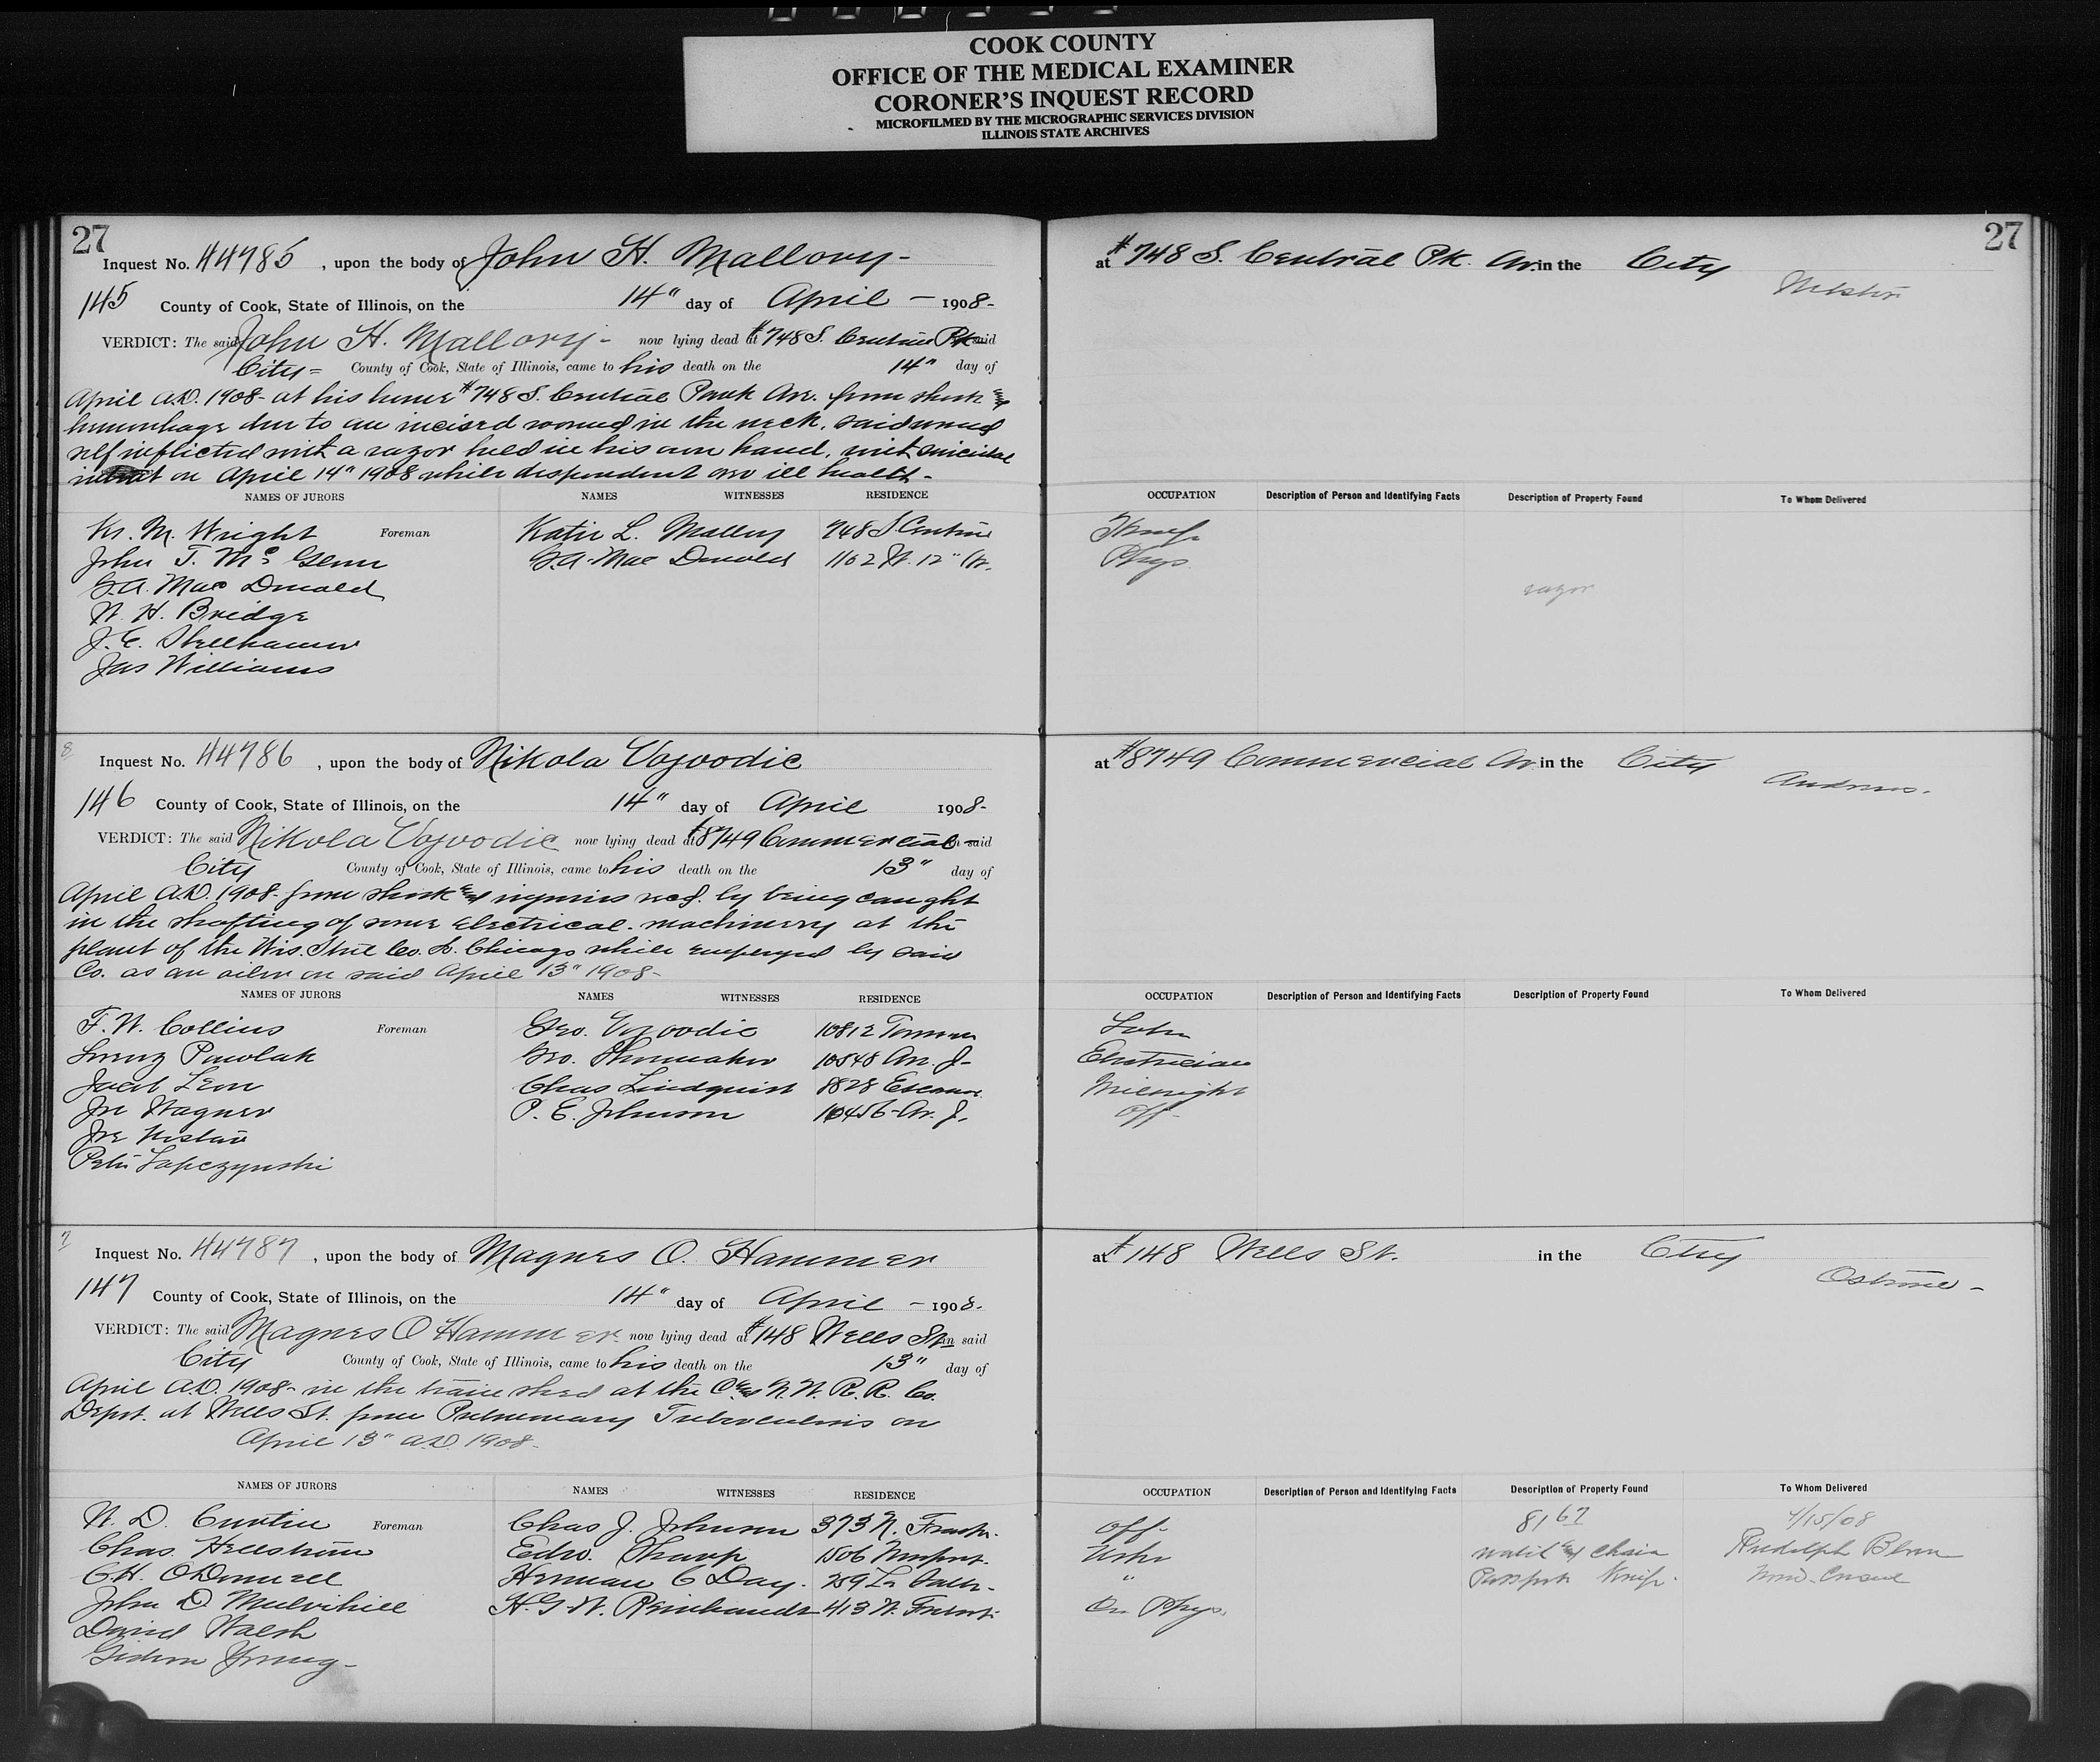 COOK COUNTY
OFFICE OF THE MEDICAL EXAMINER
CORONER'S INQUEST RECORD
MICROFILMED BY THE MICROGRAPHIC SERVICES DIVISION
ILLINOIS STATE ARCHIVES
27
Inquest No. 44785, upon the body of John H. Mallory -
145 County of Cook, State of Illinois, on the 14" day of April - 1908-
VERDICT: The said John H. Mallory - now lying dead at #748 S. Central Pk said
City = County of Cook, State of Illinois, came to his death on the 14" day of
April A.D. 1908- at his home #748 S. Central Park Ave. from shock and
hemorrhage due to an incised wound in the neck, said wound
self inflicted with a razor held in his own hand, with suicidal
intent on April 14" 1908 while despondent over ill health -
NAMES OF JURORS NAMES WITNESSES RESIDENCE
M. Wright Foreman Katie L. Mallory 748 S Central
John T. McGlenn G.A. Mac Donald 1102 W. 12"
G.A. Mac Donald
W. H. Bridge
J. C.
Jas Williams
Inquest No. 44786, upon the body of Nikola Vojvodic
146 County of Cook, State of Illinois, on the 14" day of April 1908-
VERDICT: The said Nikola Vojvodic now lying dead at #8749 Commercial in said
City County of Cook, State of Illinois, came to his death on the 13" day of
April A.D. 1908- from shock and injuries recd. by being caught
in the shafting of some electrical machinery at the
plant of the Wis. Steel Co. So. Chicago while employed by said
Co. as an oiler on said April 13" 1908-
NAMES OF JURORS NAMES WITNESSES RESIDENCE
F. W. Collins Foreman Geo. Vojvodic 10812 Torrence
Lorenz Pawlak Geo. Shumaker 10548 Av. J-
Jacob Leon Chas Lindquist 8828 Escanaba
Joe Wagner P. E. Johnson 10456 Av. J.
Joe
Peter Lapczynski
Inquest No. 44787, upon the body of Magnes O. Hammer
147 County of Cook, State of Illinois, on the 14" day of April - 1908-
VERDICT: The said Magnes O Hammer now lying dead at #148 Wells St. in said
City County of Cook, State of Illinois, came to his death on the 13" day of
April A.D. 1908- in the train shed at the C and N.W. R.R. Co.
Depot. at Wells St. from Pulmonary Tuberculosis on
April 13" A.D. 1908-
NAMES OF JURORS NAMES WITNESSES RESIDENCE
W. D. Curtin Foreman Chas J. Johnson 373 N.
Chas. Hellstrom Edw. Sharp 1506
C.H. O'Donnell Herman C Day. 259 La Salle
John D. Mulvihill H.G.W. Reinhardt 413 W.
David Walsh
Gideon Young -
27
at #748 S. Central Pk. Av. in the City
OCCUPATION Description of Person and Identifying Facts Description of Property Found To Whom Delivered
Phys
razor
at #8749 Commercial Av. in the City
Andrews.
OCCUPATION Description of Person and Identifying Facts Description of Property Found To Whom Delivered
Electrician
Millwright
Off
at #148 Wells St. in the City
Ostrom -
OCCUPATION Description of Person and Identifying Facts Description of Property Found To Whom Delivered
Off 81 67 4/15/08
Usher watch and chain Rudolph
" Passport Knife.
Co Phys.